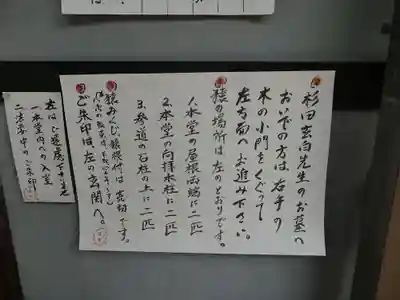 杉田玄白先生のお墓へ
おいでの方は右手の
木の小門をくぐって
左方面へお進み下さい。
猿の場所は左のとおりです。
1.本堂の屋根両端に二匹
2.本堂の向拝木柱に二匹
3.参道の石柱の上に二匹
猿みくじ、根付は売切です。
ご朱印は、左の玄関へ。
左はご遠慮下さい
一、本堂内への入堂